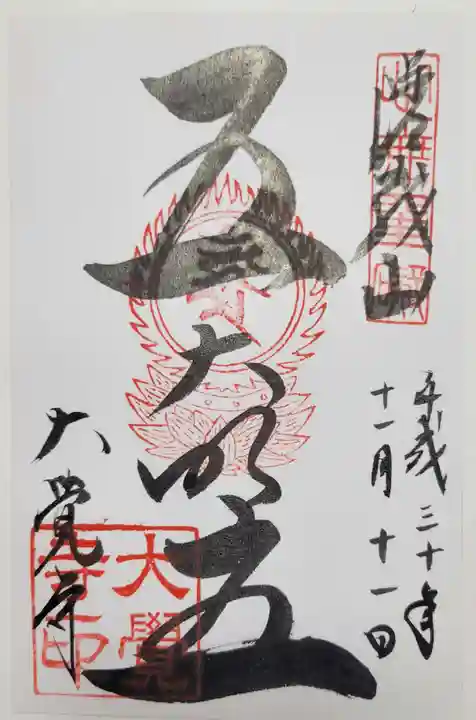 嵯峨山
平成三十年
十一月十一日
五大明王
大覚寺
大覺
寺之印